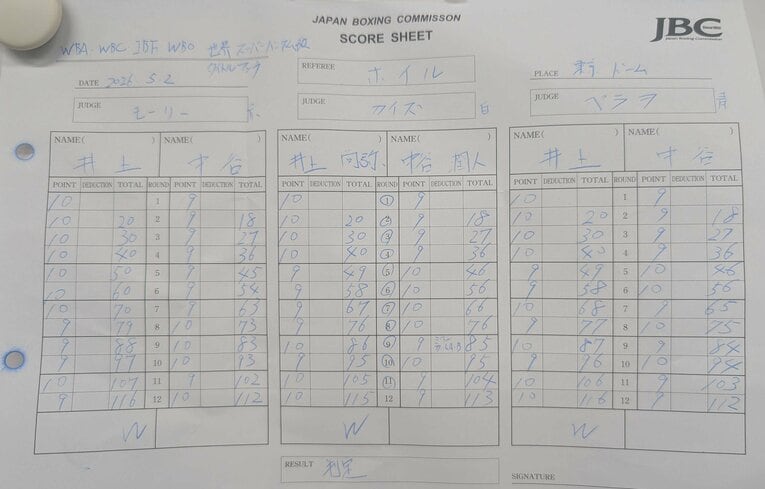 JAPAN BOXING COMMISSON
SCORE SHEET
JBC
WBA・WBC IBF WBO 世界スーパーバンタム級
タイトルマッチ
DATE 2026 5.2
REFEREE ホイル
PLACE 東京ドーム
JUDGE モーリー 赤
JUDGE カイズ 白
JUDGE ペラヲ 青
NAME( ) 井上 NAME( ) 中谷 NAME( ) 井上 尚弥 NAME( ) 中谷 潤人 NAME( ) 井上 NAME( ) 中谷
POINT DEDUCTION TOTAL ROUND POINT DEDUCTION TOTAL POINT DEDUCTION TOTAL ROUND POINT DEDUCTION TOTAL POINT DEDUCTION TOTAL ROUND POINT DEDUCTION TOTAL
10 1 9 10 ① 9 10 1 9
10 20 2 9 18 10 20 ② 9 18 10 20 2 9 18
10 30 3 9 27 10 30 ③ 9 27 10 30 3 9 27
10 40 4 9 36 10 40 ④ 9 36 10 40 4 9 36
10 50 5 9 45 9 49 ⑤ 10 46 9 49 5 10 46
10 60 6 9 54 9 58 ⑥ 10 56 9 58 6 10 56
10 70 7 9 63 9 67 ⑦ 10 66 10 68 7 9 65
9 79 8 10 73 9 76 ⑧ 10 76 9 77 8 10 75
9 88 9 10 83 10 86 ⑨ 9 85 10 87 9 9 84
9 97 10 10 93 9 95 ⑩ 10 95 9 96 10 10 94
10 107 11 9 102 10 105 ⑪ 9 104 10 106 11 9 103
9 116 12 10 112 10 115 12 9 113 10 116 12 9 112
W W W
RESULT 判定
SIGNATURE